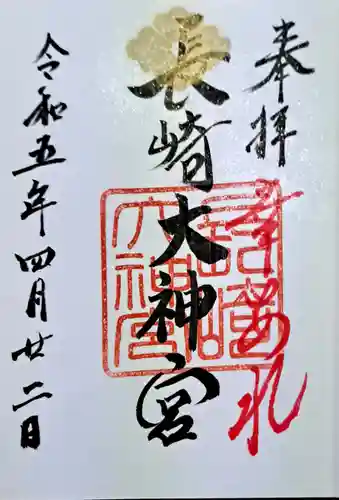 奉拝
幸あれ
長崎大神宮
長崎大神宮
令和五年四月廿二日